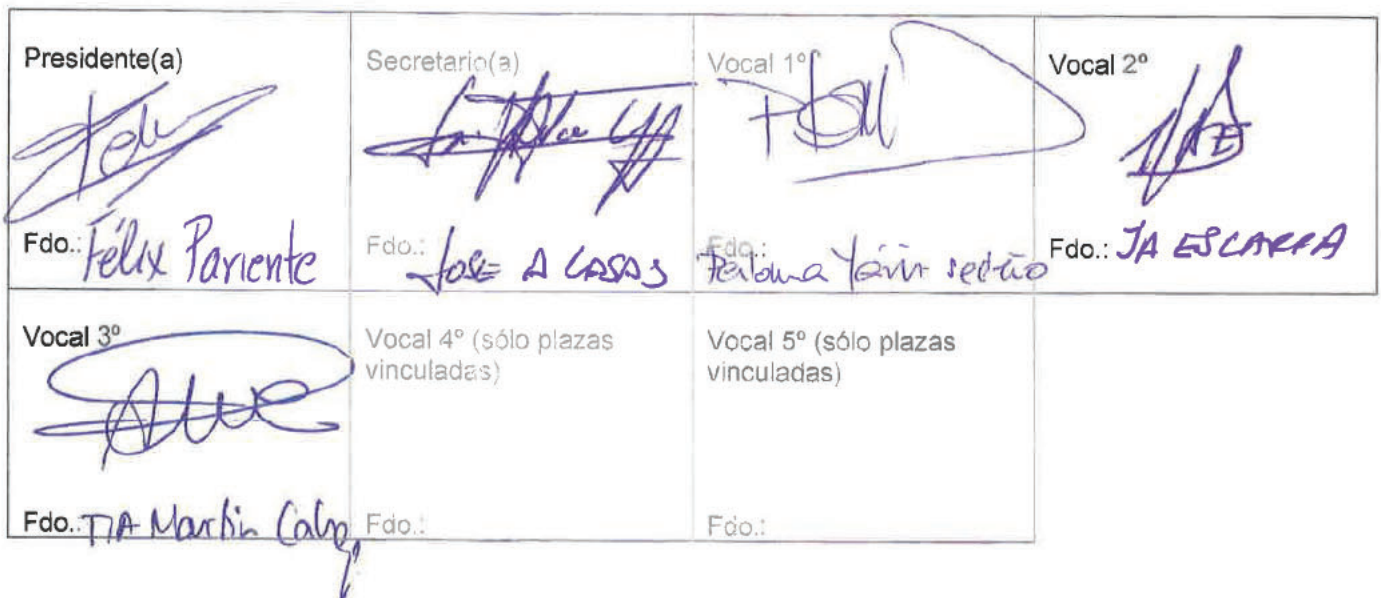 Presidente(a)
Fdo.: Félix Pariente
Secretario(a)
Fdo.: JOSE A CASAS
Vocal 1º
Fdo.: Paloma Yáñez-Sedeño
Vocal 2º
Fdo.: JA ESCARPA
Vocal 3º
Fdo.: Martín
Vocal 4º (sólo plazas
vinculadas)
Fdo.:
Vocal 5º (sólo plazas
vinculadas)
Fdo.: